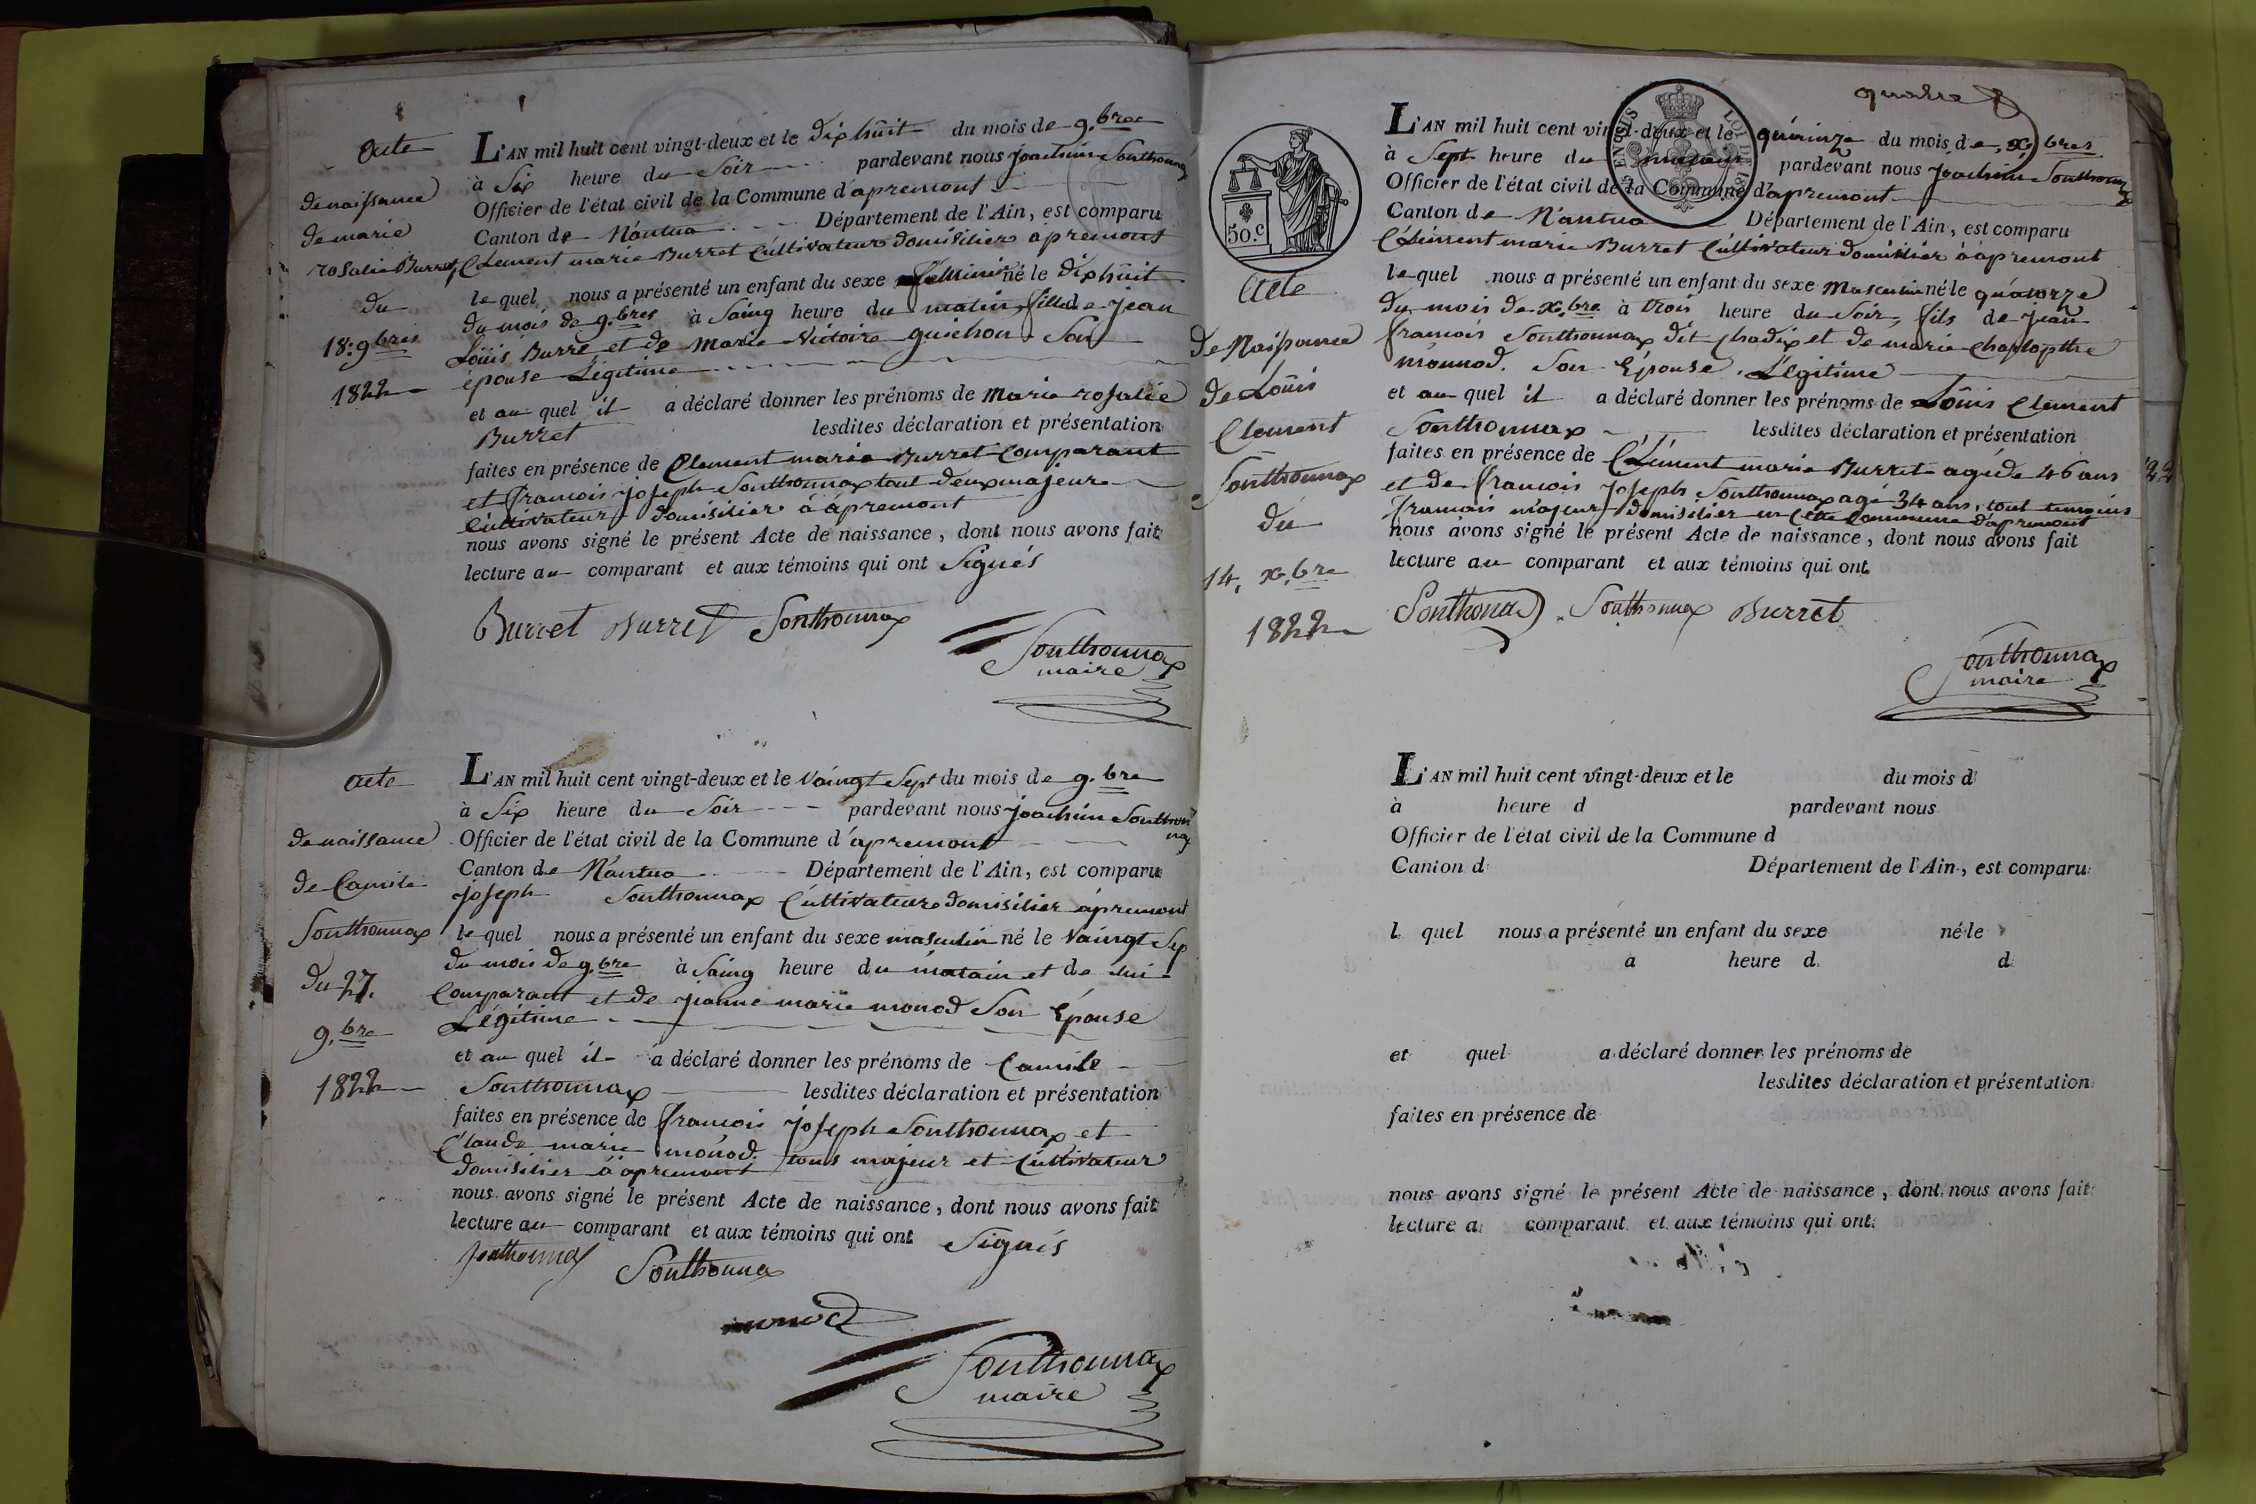 acte
de naissance
de marie
rosalie Burret
du
18: 9bres
1822
L'AN mil huit cent vingt-deux et le dix huit du mois de 9.bres
à Six heure du Soir pardevant nous joachim Sonthonnax
Officier de l'état civil de la Commune d'apremont
Canton de Nantua Département de l'Ain, est comparu
Clement marie Burret Cultivateur domisilier apremont
lequel nous a présenté un enfant du sexe feminin né le dix huit
du mois de 9.bres à Saing heure du matin, fille de jean
Loüis Burre et de Marie Victoire guichon Son
épouse Légitime
et au quel il a déclaré donner les prénoms de Marie rosalie
Burret lesdites déclaration et présentation
faites en présence de Clement marie Burret Comparant
et francois joseph Sonthonnax tout deux majeur
Cultivateur domisilier à apremont
nous avons signé le présent Acte de naissance, dont nous avons fait
lecture au comparant et aux témoins qui ont Signés
Burret Burret Sonthonnax
Sonthonnax
maire
acte
de naissance
de Camile
Sonthonnax
du 27.
9.bre
1822
L'AN mil huit cent vingt-deux et le vaingt Sept du mois de 9.bre
à Six heure du Soir pardevant nous joachim Sonthonnax
Officier de l'état civil de la Commune d'apremont
Canton de Nantua Département de l'Ain, est comparu
joseph Sonthonnax Cultivateur domisilier apremont
lequel nous a présenté un enfant du sexe masculin né le Vaingt Sep
du mois de 9.bre à Saing heure du matain et de lui
Comparant et de jeanne marie monod Son Épouse
Légitime
et au quel il a déclaré donner les prénoms de Camile
Sonthonnax lesdites déclaration et présentation
faites en présence de francois joseph Sonthonnax et
Claude marie monod. tous majeur et Cultivateur
domisilier à apremont
nous avons signé le présent Acte de naissance, dont nous avons fait
lecture au comparant et aux témoins qui ont Signés
Sonthonnax Sonthonnax
monod
Sonthonnax
maire
50.c
Acte
de Naissance
de Loüis
Clement
Sonthonnax
du
14. x.bre
1822
L'AN mil huit cent vingt-deux et le quinze du mois de x.bres
à Sept heure du pardevant nous Joachim Sonthonnax
Officier de l'état civil de la Commune d'apremont
Canton de Nantua Département de l'Ain, est comparu
Clément marie Burret Cultivateur domisilier à apremont
lequel nous a présenté un enfant du sexe Masculin né le quatorze
du mois de x.bre à trois heure du Soir, fils de jean
francois Sonthonnax dit chadix et de marie
monnod. Son Épouse. Légitime
et au quel il a déclaré donner les prénoms de Loüis Clement
Sonthonnax lesdites déclaration et présentation
faites en présence de Clément marie Burret agé de 46 ans
et de francois joseph Sonthonnax agé 34 ans, tout temoins
francais majeur domisilier en Cette Commune d'apremont
nous avons signé le présent Acte de naissance, dont nous avons fait
lecture au comparant et aux témoins qui ont
Sonthonax Sonthonnax Burret
Sonthonnax
maire
L'AN mil huit cent vingt-deux et le du mois d
à heure d pardevant nous
Officier de l'état civil de la Commune d
Canton d Département de l'Ain, est comparu
l quel nous a présenté un enfant du sexe né le
à heure d d
et quel a déclaré donner les prénoms de
lesdites déclaration et présentation
faites en présence de
nous avons signé le présent Acte de naissance, dont nous avons fait
lecture a comparant et aux témoins qui ont